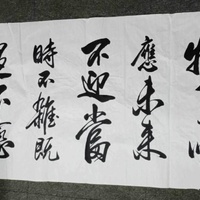 應未來
不迎當
時不雜既
過不戀